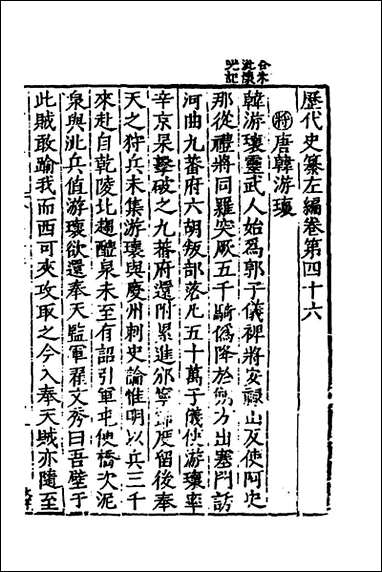 合朱
泚懷
光記
歷代史纂左編卷第四十六
將唐韓游瓌
韓游瓌靈武人始為郭子儀裨將安祿山反使阿史
那從禮將同羅突厥五千騎偽降於朔方出塞門訪
河曲九蕃府六胡叛部落凡五十萬子儀使游瓌率
辛京杲擊破之九蕃府還附累進邠寧節度留後奉
天之狩兵未集游瓌與慶州刺史論惟明以兵三千
來赴自乾陵北趨醴泉未至有詔引軍屯便橋次泥
泉與泚兵值游瓌欲還奉天監軍翟文秀曰吾壁于
此賊敢踰我而西可夾攻取之今入奉天賊亦隨至